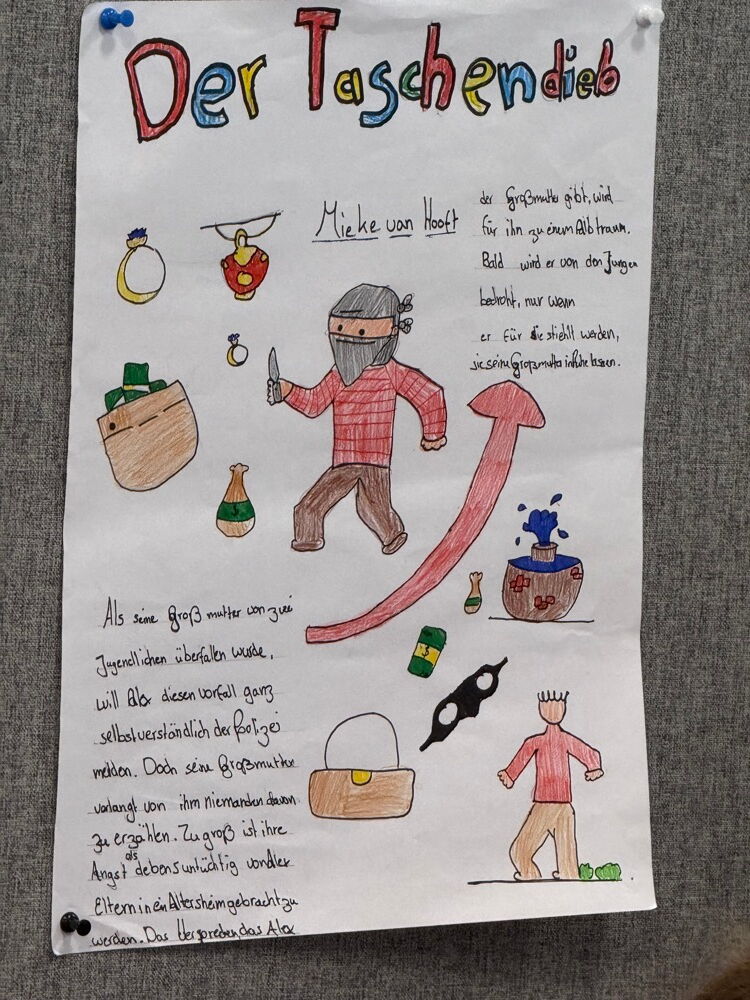 Der Taschendieb
Mieke van Hooft
Als seine Großmutter von zwei
Jugendlichen überfallen wurde,
will Alex diesen vorfall ganz
selbstverständlich der Polizei
melden. Doch seine Großmutter
verlangt von ihm niemanden davon
zu erzählen. Zu groß ist ihre
als
Angst lebensuntüchtig von Alex
Eltern in ein Altersheim gebracht zu
werden. Das Versprechen, das Alex
der Großmutter gibt, wird
für ihn zu einem Albtraum.
Bald wird er von den Jungen
bedroht, nur wenn
er für sie stiehlt werden,
sie seine Großmutter in Ruhe lassen.
$
$